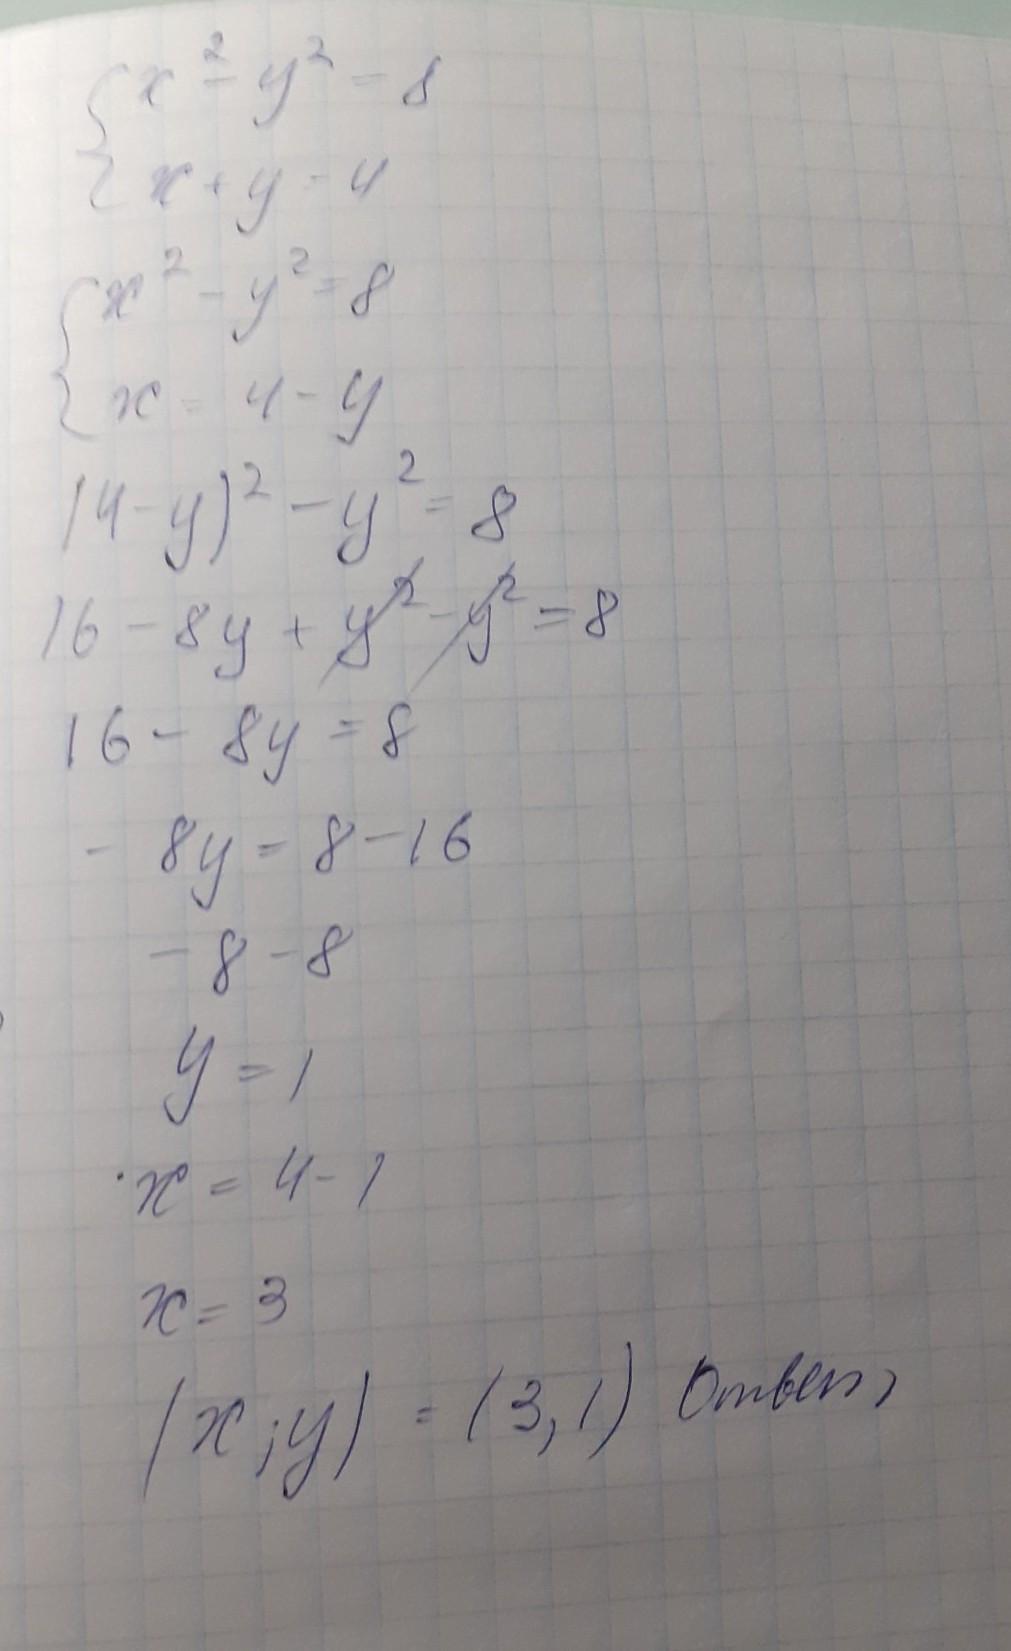 {x² - y² = 8
{x + y = 4
{x² - y² = 8
{x = 4 - y
(4 - y)² - y² = 8
16 - 8y + y² - y² = 8
16 - 8y = 8
- 8y = 8 - 16
- 8 - 8
y = 1
x = 4 - 1
x = 3
(x; y) = (3, 1) Ответ